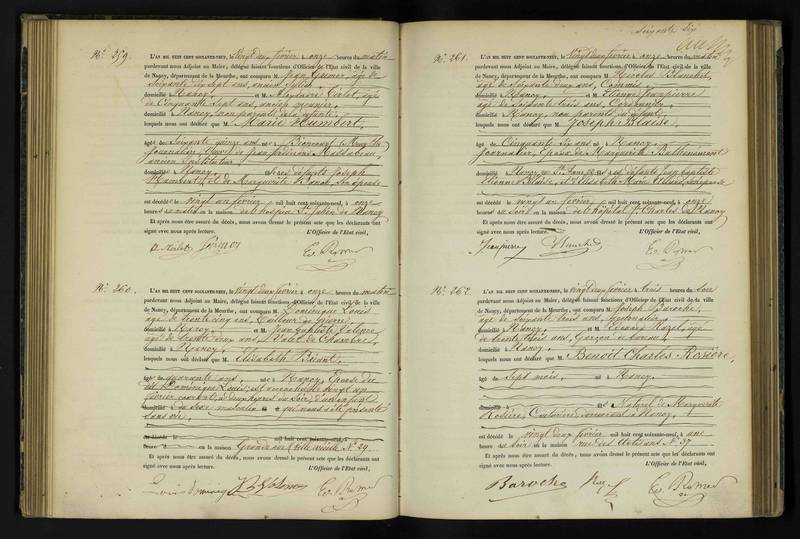 N°. 259.
L'AN MIL HUIT CENT SOIXANTE-NEUF, vingt deux février à onze heures du matin
pardevant nous Adjoint au Maire, délégué faisant fonctions d'Officier de l'Etat civil de la ville
de Nancy, département de la Meurthe, ont comparu M. Jean Grimer, âgé de
soixante dix ans, ancien
domicilié à Nancy, et M. Alexandre Verlet, âgé
de Cinquante sept ans, ancien menuisier,
domicilié à Nancy, non parents de la défunte,
lesquels nous ont déclaré que M. Marie Humbert,
âgée de soixante quinze ans, née à Bioncourt (Meurthe)
journalière, Veuve de Jean
ancien Instituteur
domiciliée à Nancy, des défunts Joseph
Humbert et de Marguerite son épouse
est décédée le vingt un février mil huit cent soixante-neuf, à onze
heures du matin en la maison de l'hospice St. Julien de Nancy
Et après nous être assuré du décès, nous avons dressé le présent acte que les déclarants ont
signé avec nous après lecture.
L'Officier de l'Etat civil,
N°. 260.
L'AN MIL HUIT CENT SOIXANTE-NEUF, vingt deux février à onze heures du matin
pardevant nous Adjoint au Maire, délégué faisant fonctions d'Officier de l'Etat civil de la ville
de Nancy, département de la Meurthe, ont comparu M. Dominique Louis
âgé de trente cinq ans, Tailleur de pierre,
domicilié à Nancy, et M. Jean Baptiste Valence
âgé de trente deux ans, Valet de Chambre,
domicilié à Nancy,
lesquels nous ont déclaré que M. Elisabeth Briant,
âgée de quarante ans, née à Nancy, Epouse du
dit Dominique Louis, est accouchée le vingt un
février courant, à deux heures du soir, d'un enfant
du sexe masculin qui nous a été présenté
sans vie,
est décédé le mil huit cent soixante-neuf, à
heures du en la maison Grande rue (ville vieille) N° 29
Et après nous être assuré du décès, nous avons dressé le présent acte que les déclarants ont
signé avec nous après lecture.
L'Officier de l'Etat civil,
Louis dominique
soixante six
N°. 261.
L'AN MIL HUIT CENT SOIXANTE-NEUF, le vingt deux février à onze heures du matin
pardevant nous Adjoint au Maire, délégué faisant fonctions d'Officier de l'Etat civil de la ville
de Nancy, département de la Meurthe, ont comparu M. Nicolas Blanchet,
âgé de soixante deux ans, Commis,
domicilié à Nancy, et M. Etienne Jeanpierre
âgé de soixante trois ans, Cordonnier,
domicilié à Nancy, non parents du défunt,
lesquels nous ont déclaré que M. Joseph Blaise,
âgé de Cinquante six ans, né à Nancy,
journalier, Epoux de Marguerite
domicilié à Nancy, r. St. Anne des défunts Jean Baptiste
Etienne Blaise, et d'Elisabeth Marie son épouse
est décédé le vingt un février mil huit cent soixante-neuf, à onze
heures du soir en la maison de l'hôpital St. Charles de Nancy
Et après nous être assuré du décès, nous avons dressé le présent acte que les déclarants ont
signé avec nous après lecture.
L'Officier de l'Etat civil,
Jeanpierre Blanchet
N°. 262.
L'AN MIL HUIT CENT SOIXANTE-NEUF, le vingt deux février à trois heures du soir
pardevant nous Adjoint au Maire, délégué faisant fonctions d'Officier de l'Etat civil de la ville
de Nancy, département de la Meurthe, ont comparu M. Joseph Baroche,
âgé de soixante trois ans,
domicilié à Nancy, et M. Eléonor Hazel, âgé
de trente trois ans, Garçon de bureau,
domicilié à Nancy,
lesquels nous ont déclaré que M. Benoit Charles Rosière,
âgé de sept mois, né à Nancy,
domicilié à fils Naturel de Marguerite
Rosière, Couturière, demeurant à Nancy,
est décédé le vingt deux février mil huit cent soixante-neuf, à une
heure du soir en la maison rue des Artisans N° 37
Et après nous être assuré du décès, nous avons dressé le présent acte que les déclarants ont
signé avec nous après lecture.
L'Officier de l'Etat civil,
Baroche